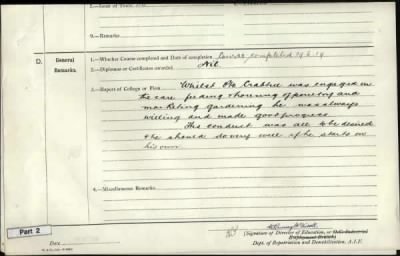 9.—Remarks
D.
General
Remarks.
1.—Whether Course completed and Date of completion Course completed
2.—Diplomas or Certificates awarded. Nil.
3.—Report of College or Firm Whilst Pte Crabtree was engaged in
the care feeding & housing of poultry and
marketing gardening he was always
willing and made good progress
His conduct was all to be desired
& he should do very well if he starts on
his own
4.—Miscellaneous Remarks.
Part 2
(Signature of Director of Education, or
Dept. of Repatriation and Demobilisation, A.I.F.